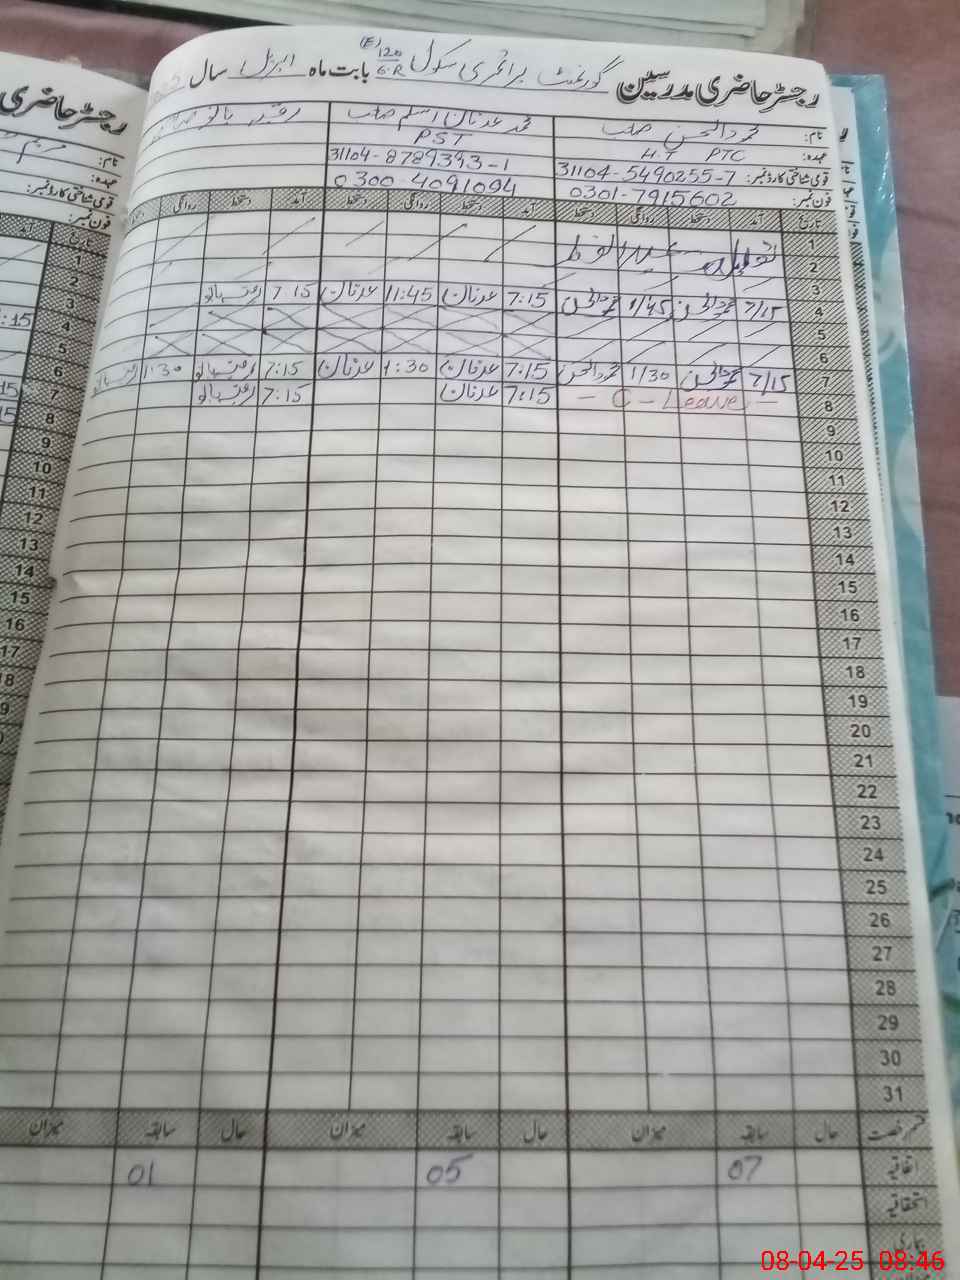 رجسٹر حاضری مدرسین گورنمنٹ پرائمری سکول 120/6-R (E) بابت ماہ اپریل سال
نام: محمود الحسن صاحب محمد عدنان اسلم صاحب
عہدہ: H.T PTC PST
قومی شناختی کارڈ نمبر: 31104-5490255-7 31104-8789393-1
فون نمبر: 0301-7915602 0300-4091094
تاریخ آمد دستخط روانگی دستخط آمد دستخط روانگی دستخط آمد دستخط روانگی
1 عید الفطر
2
3
4 7/15 محمود الحسن 1/45 محمود الحسن 7:15 عدنان 11:45 عدنان 7:15
5
6
7 7/15 محمود الحسن 1/30 محمود الحسن 7:15 عدنان 1:30 عدنان 7:15 1:30
8 - C - Leave - 7:15 عدنان 7:15
9
10
11
12
13
14
15
16
17
18
19
20
21
22
23
24
25
26
27
28
29
30
31
قسم رخصت حال سابقہ میزان حال سابقہ میزان حال سابقہ میزان
اتفاقیہ 07 05 01
استحقاقیہ
بیماری
رجسٹر حاضری
نام:
عہدہ:
قومی شناختی کارڈ نمبر:
فون نمبر:
تاریخ آمد
1
2
3
4 :15
5
6
7 15
8 15
9
10
11
12
13
14
15
16
17
18
08-04-25 08:46